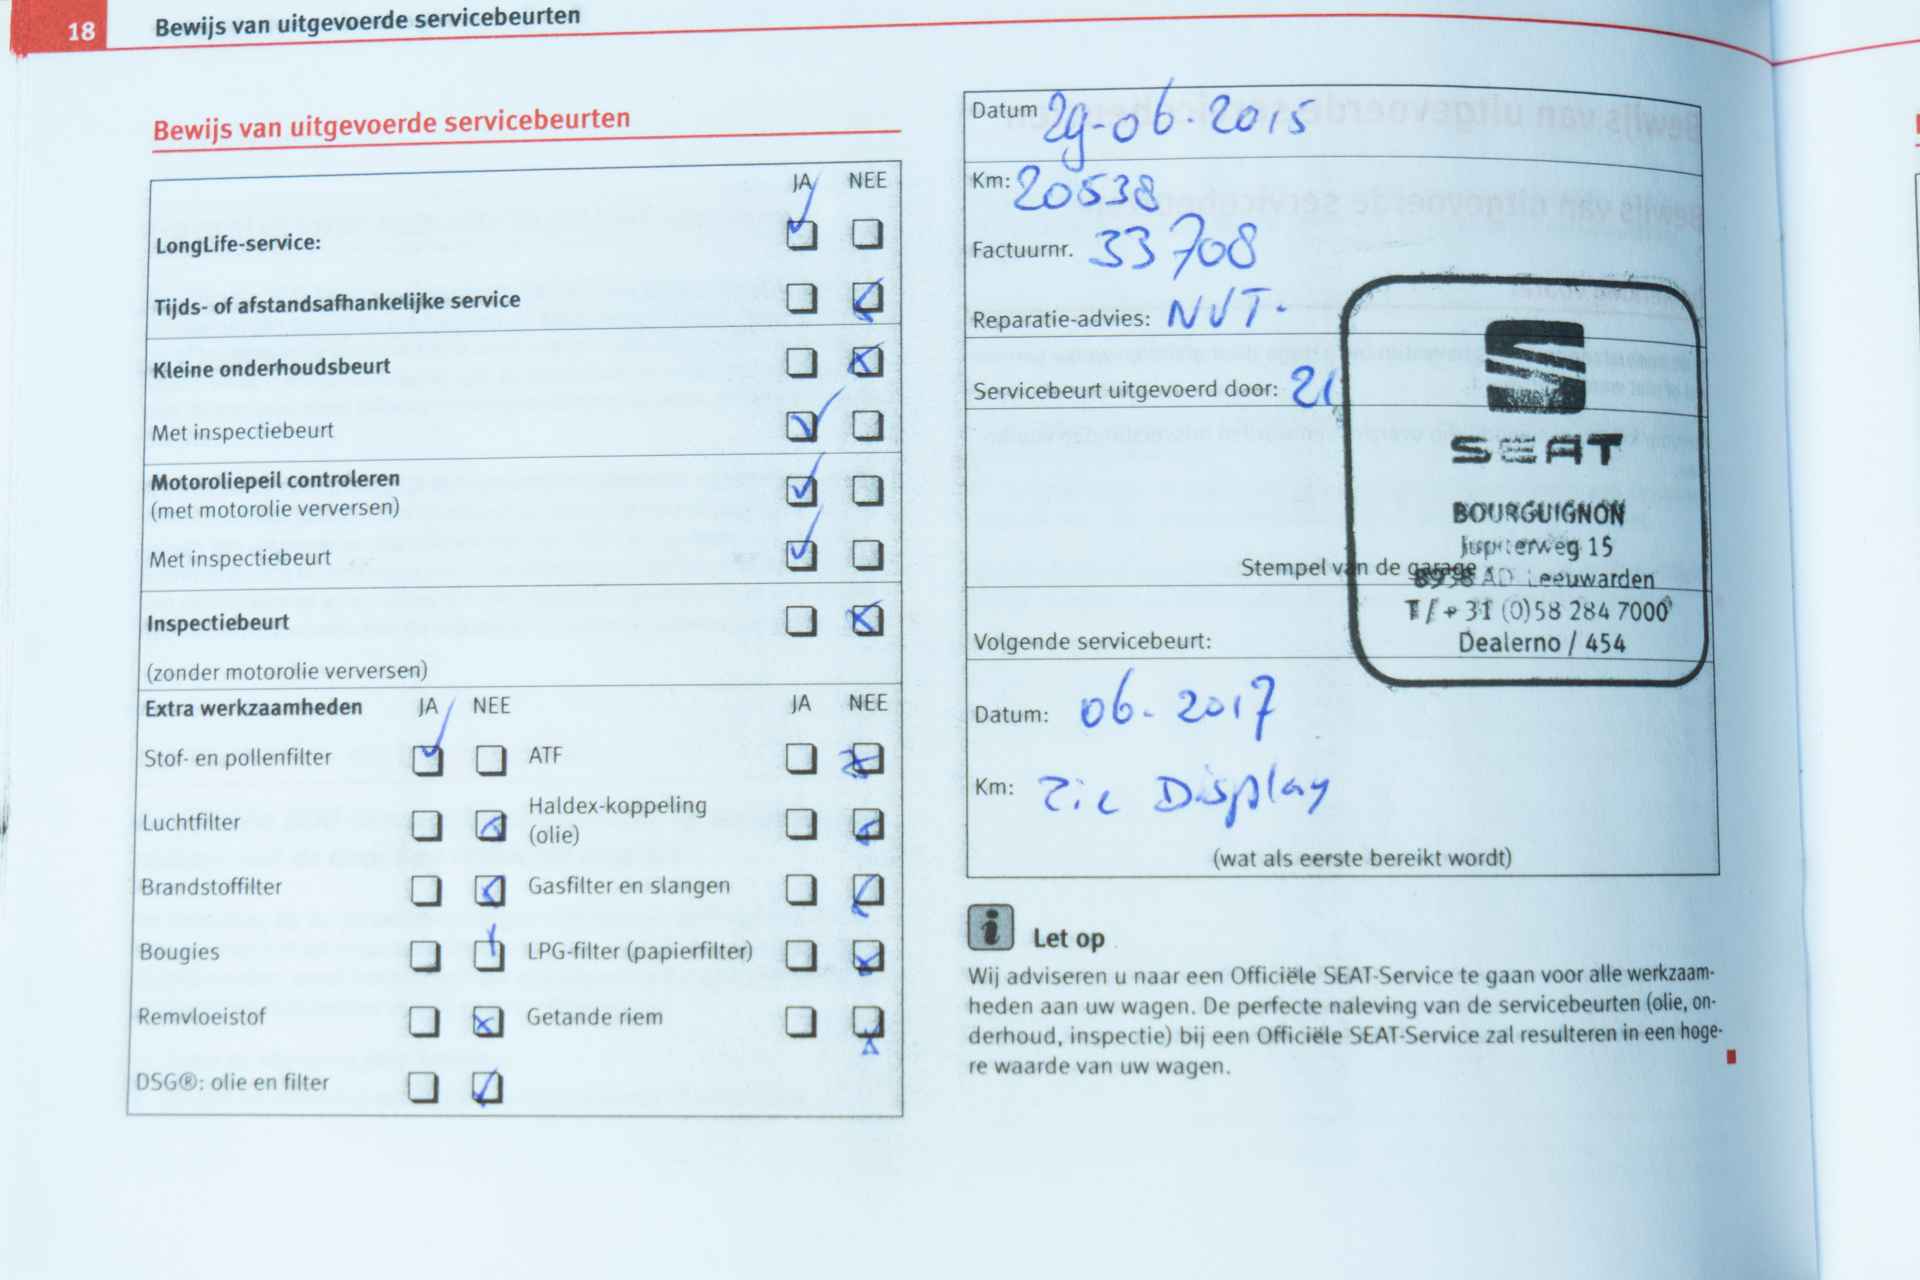 18 Bewijs van uitgevoerde servicebeurten
Bewijs van uitgevoerde servicebeurten
JA NEE
LongLife-service:
Tijds- of afstandsafhankelijke service
Kleine onderhoudsbeurt
Met inspectiebeurt
Motoroliepeil controleren
(met motorolie verversen)
Met inspectiebeurt
Inspectiebeurt
(zonder motorolie verversen)
Extra werkzaamheden JA NEE JA NEE
Stof- en pollenfilter ATF
Luchtfilter Haldex-koppeling
(olie)
Brandstoffilter Gasfilter en slangen
Bougies LPG-filter (papierfilter)
Remvloeistof Getande riem
DSG®: olie en filter
Datum 29-06-2015
Km: 20538
Factuurnr. 33708
Reparatie-advies: NVT.
Servicebeurt uitgevoerd door: 21
SEAT
BOURGUIGNON
Jupiterweg 15
Stempel van de garage
8938 AD Leeuwarden
T / + 31 (0)58 284 7000
Dealerno / 454
Volgende servicebeurt:
Datum: 06-2017
Km: Zie Display
(wat als eerste bereikt wordt)
i Let op
Wij adviseren u naar een Officiële SEAT-Service te gaan voor alle werkzaam-
heden aan uw wagen. De perfecte naleving van de servicebeurten (olie, on-
derhoud, inspectie) bij een Officiële SEAT-Service zal resulteren in een hoge-
re waarde van uw wagen.